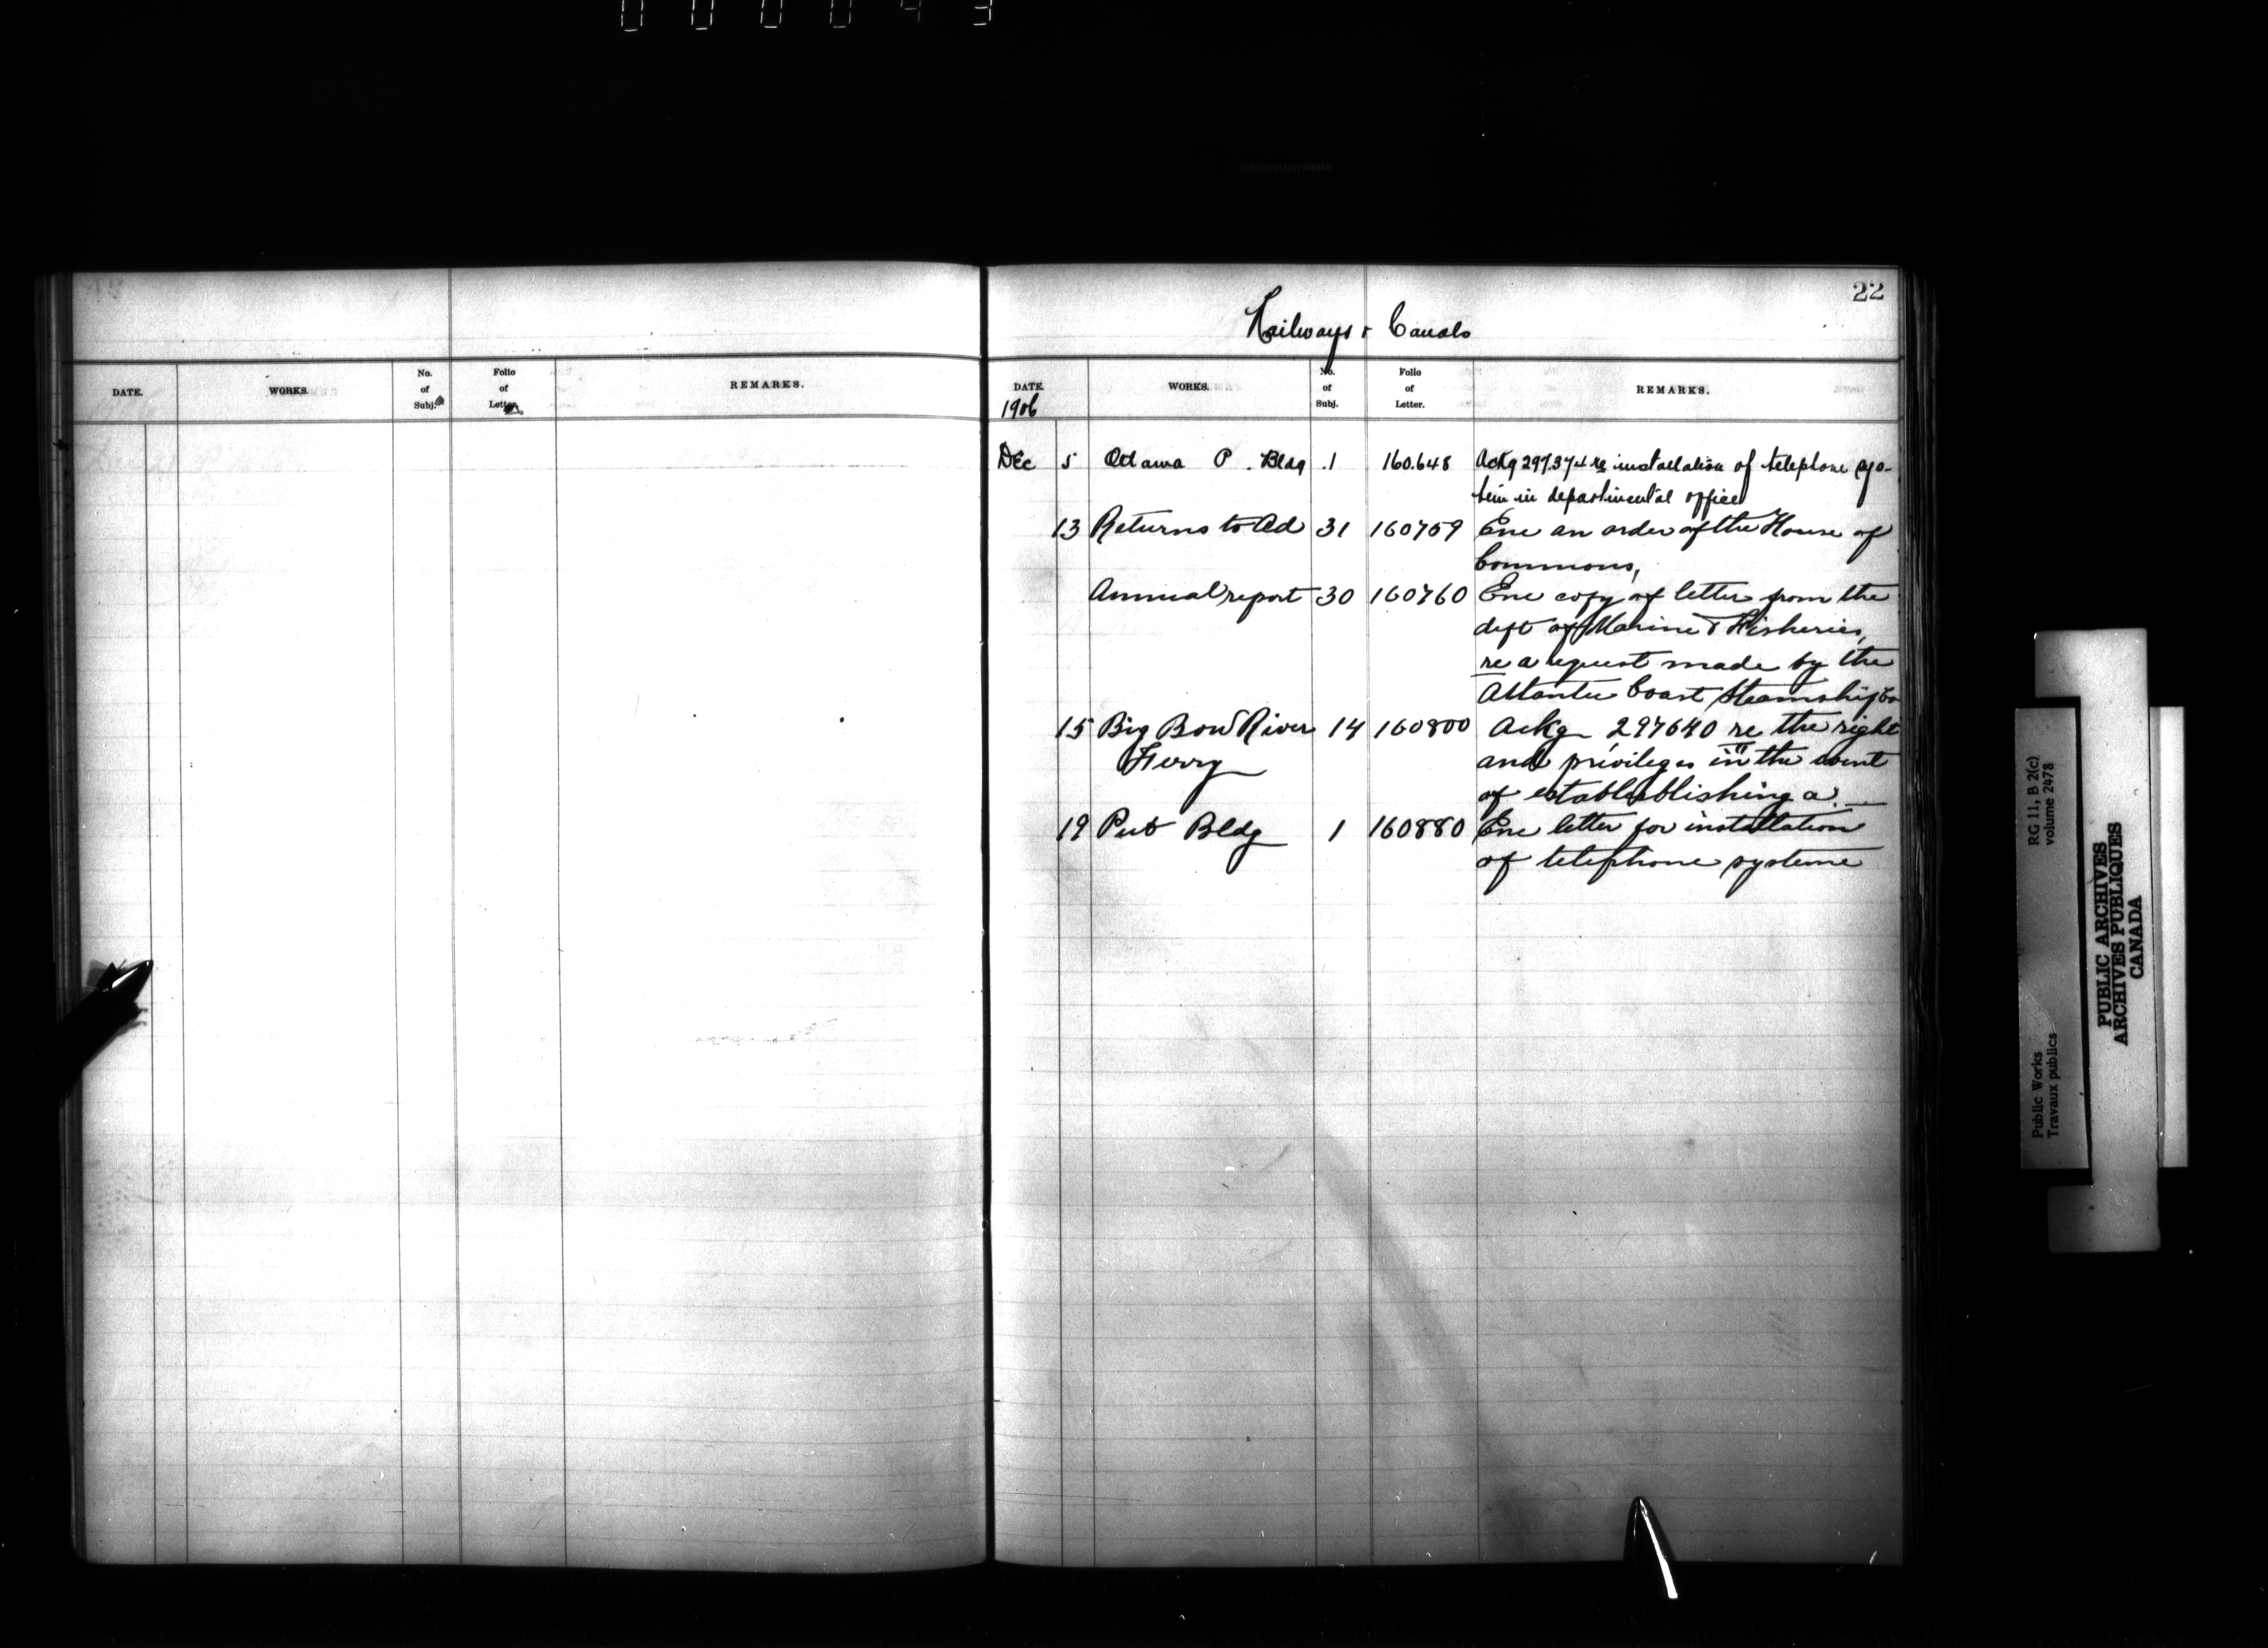 22
Railways & Canals
DATE. WORKS. No. of Subj. Folio of Letter. REMARKS.
DATE. WORKS. No. of Subj. Folio of Letter. REMARKS.
1906
Dec 5 Ottawa P. Bldg .1 160.648 Ackg 297.374 re installation of telephone sys-
tem in departmental office
13 Returns to Ad 31 160759 Enc an order of the House of
Commons,
Annual report 30 160760 Enc copy of letter from the
dept of Marine & Fisheries,
re a request made by the
Atlantic Coast Steamship Co
15 Big Bow River 14 160800 Ackg 297640 re the right
Ferry and privileges in the event
of estableblishing a
19 Pub Bldg 1 160880 Enc letter for installation
of telephone systeme
RG 11, B 2(c)
volume 2478
Public Works
Travaux publics
PUBLIC ARCHIVES
ARCHIVES PUBLIQUES
CANADA